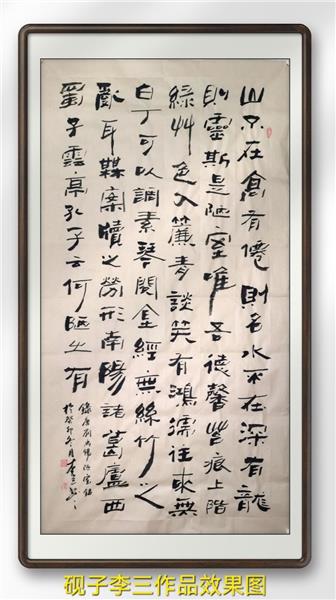 山不在高有僊則名水不在深有龍
則靈斯是陋室唯吾德馨苔痕上階
綠艸色入簾青談笑有鴻儒往來無
白丁可以調素琴閱金經無絲竹之
亂耳無案牘之勞形南陽諸葛廬西
蜀子雲亭孔子云何陋之有
錄唐劉禹錫陋室銘
於癸卯冬月李三
砚子李三作品效果图